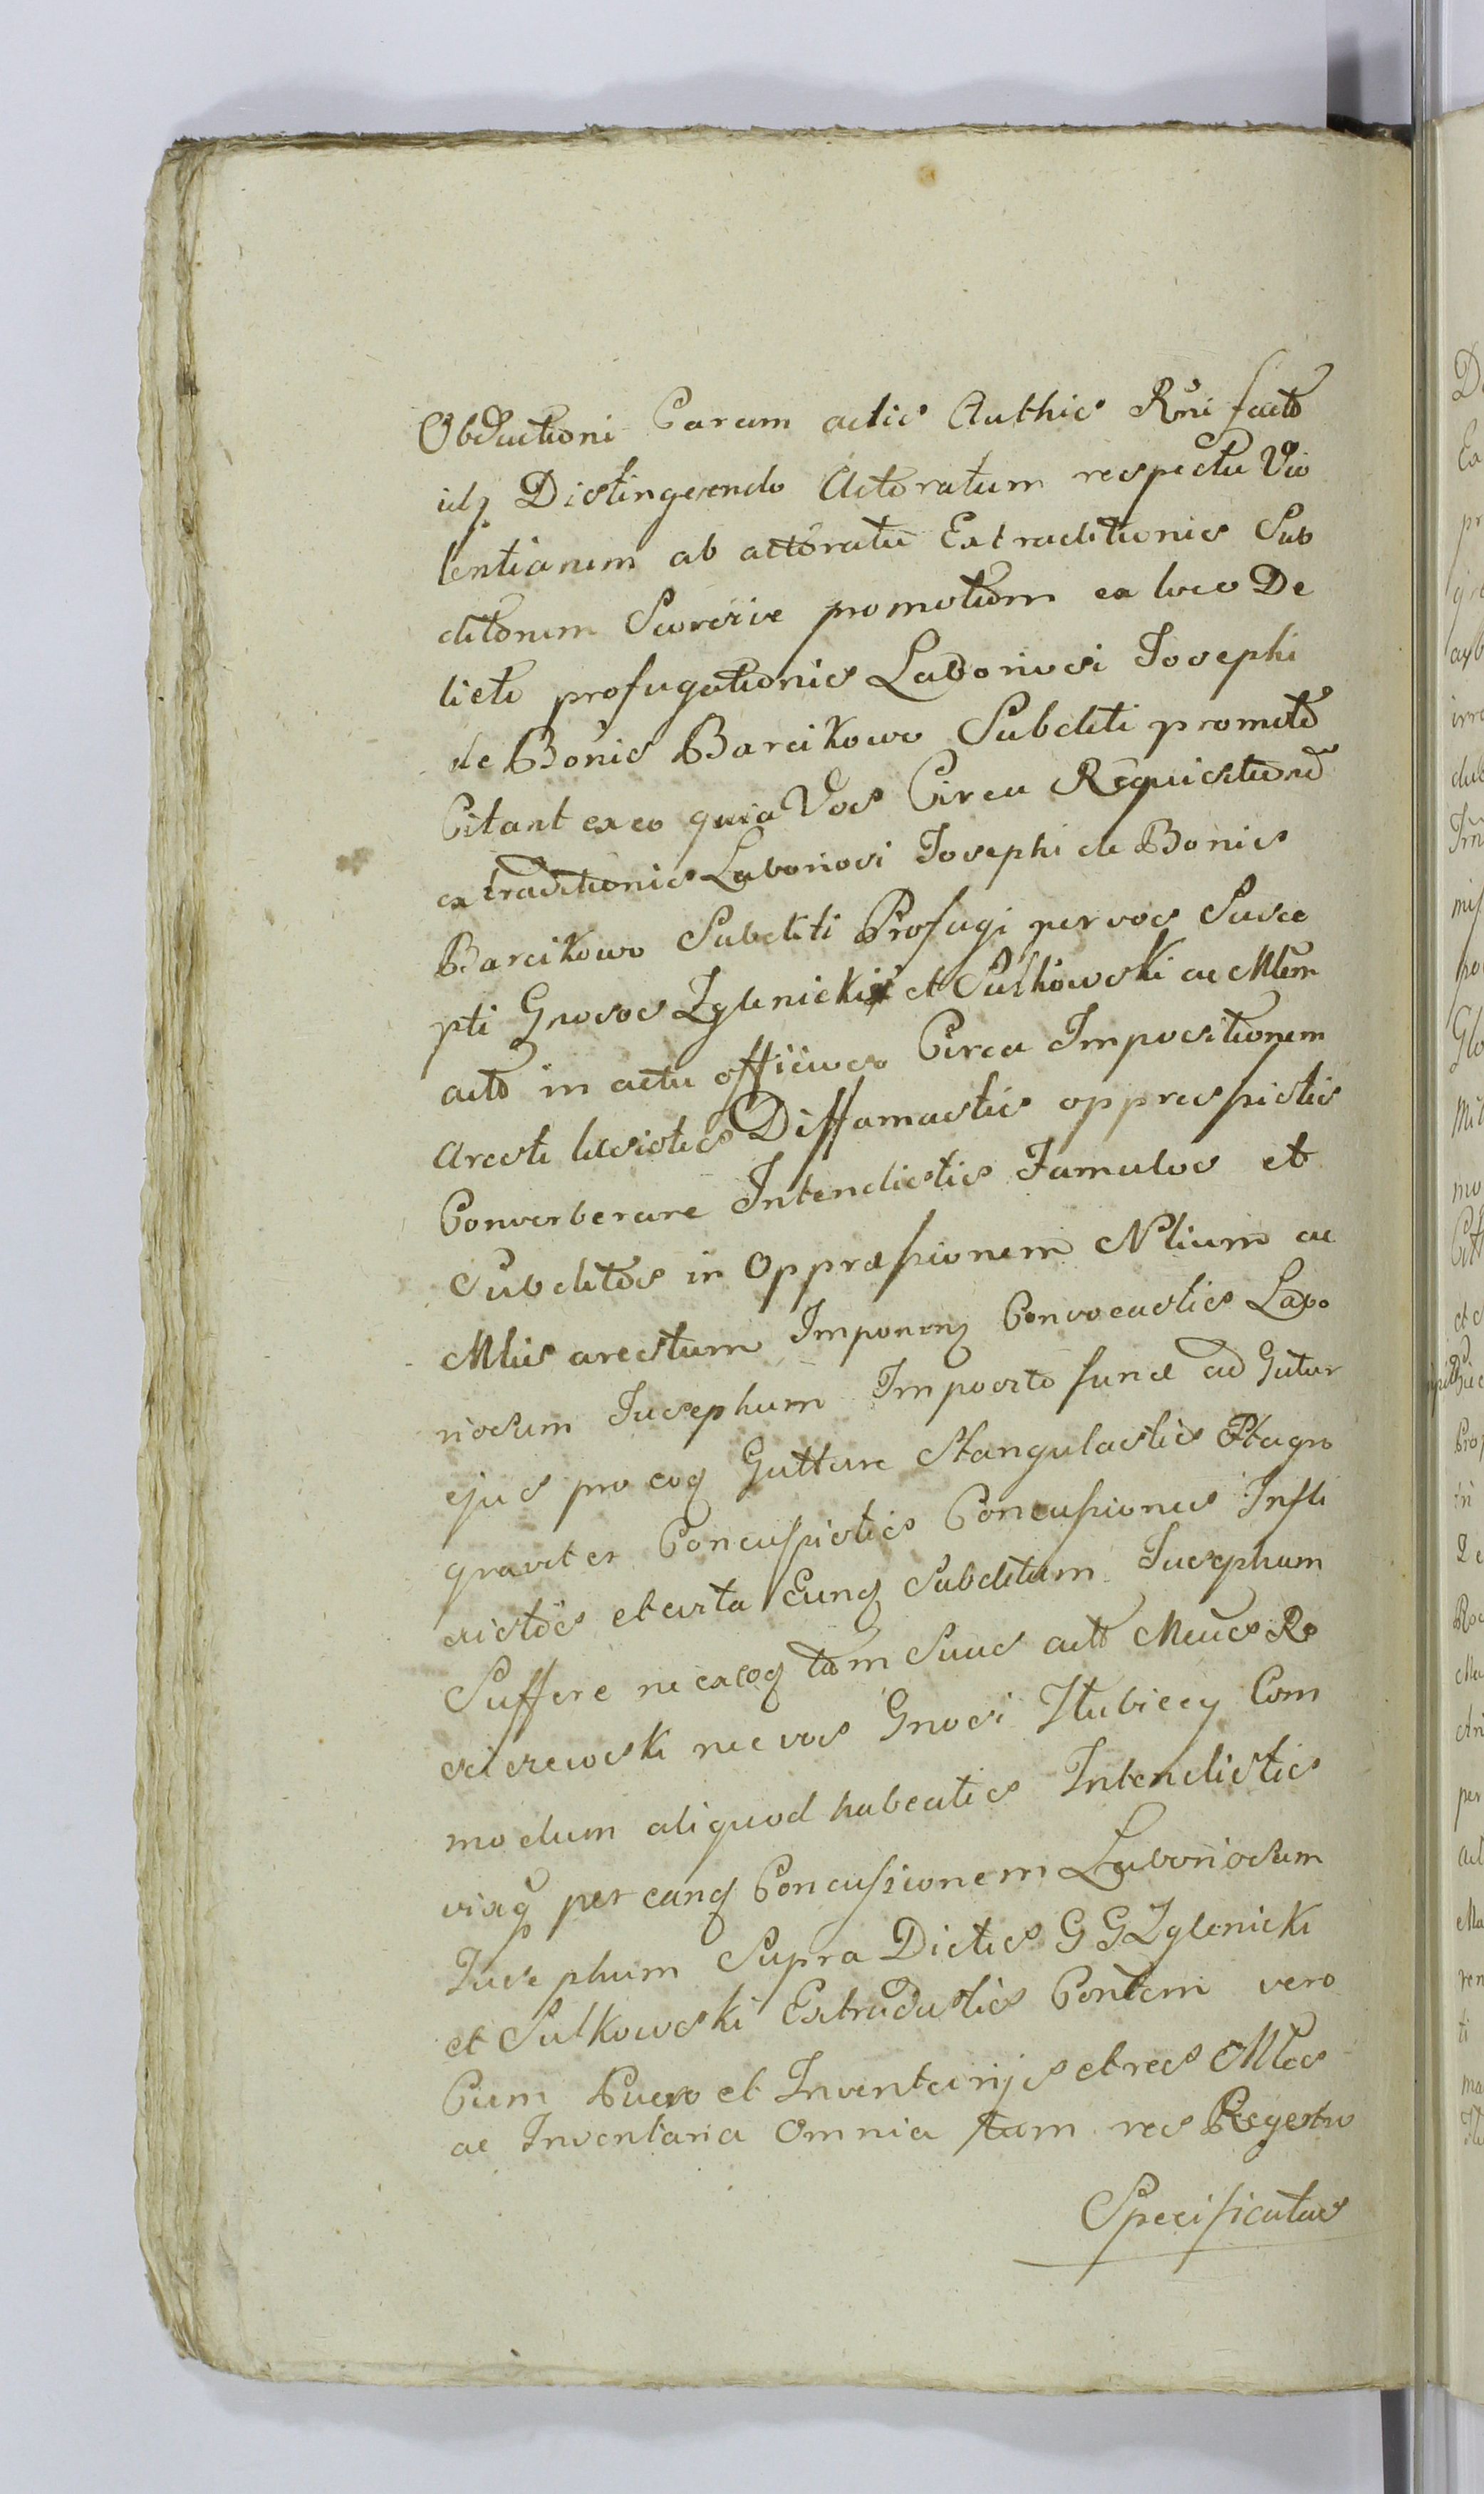 Obductioni Coram actis Authis Rni facto
idq Distingvendo Actoratum respectu Vio
lentiarum ab actoratu Extraditionis Sub
ditorum Seorsive promotum ex loco De
licti profugationis Laboriosi Josephi
de Bonis Barcikowo Subditi promoto
Citant ex eo quia Vos Circa Requisitione
extraditionis Laboriosi Josephi de Bonis
Barcikowo Subditi Profugi per vos Susce
pti Gnosos Zglenicki et Sulkowski ac Mlem
acto in actu officioso Circa Impositionem
Aresti læsistis Diffamastis oppressistis
Converberare Intendistis Famulos et
Subditos in Oppræssionem Nlium ac
Mlis arestum Imponenq Convocastis Labo
riosum Josephum Imposito fune ad Gutur
ejus pro eoq Gutture Stangulastis
graviter Concussistis Concussiones Infli
xistis et ista Eunq Subditum Josephum
Suffere ne ex eoq tam Suus acto Meus Ro
sciszewski nec vos Gnosi Hubiccy Com
modum aliquod habeatis Intendistis
vixq per eanq Concussionem Laboriosum
Josephum Supra Dictis G G Zglenicki
et Sulkowski Extradustis Contem vero
Cum Puero et Inventarijs et res Mles
ac Inventaria Omnia tam res Regestro
Specificatas